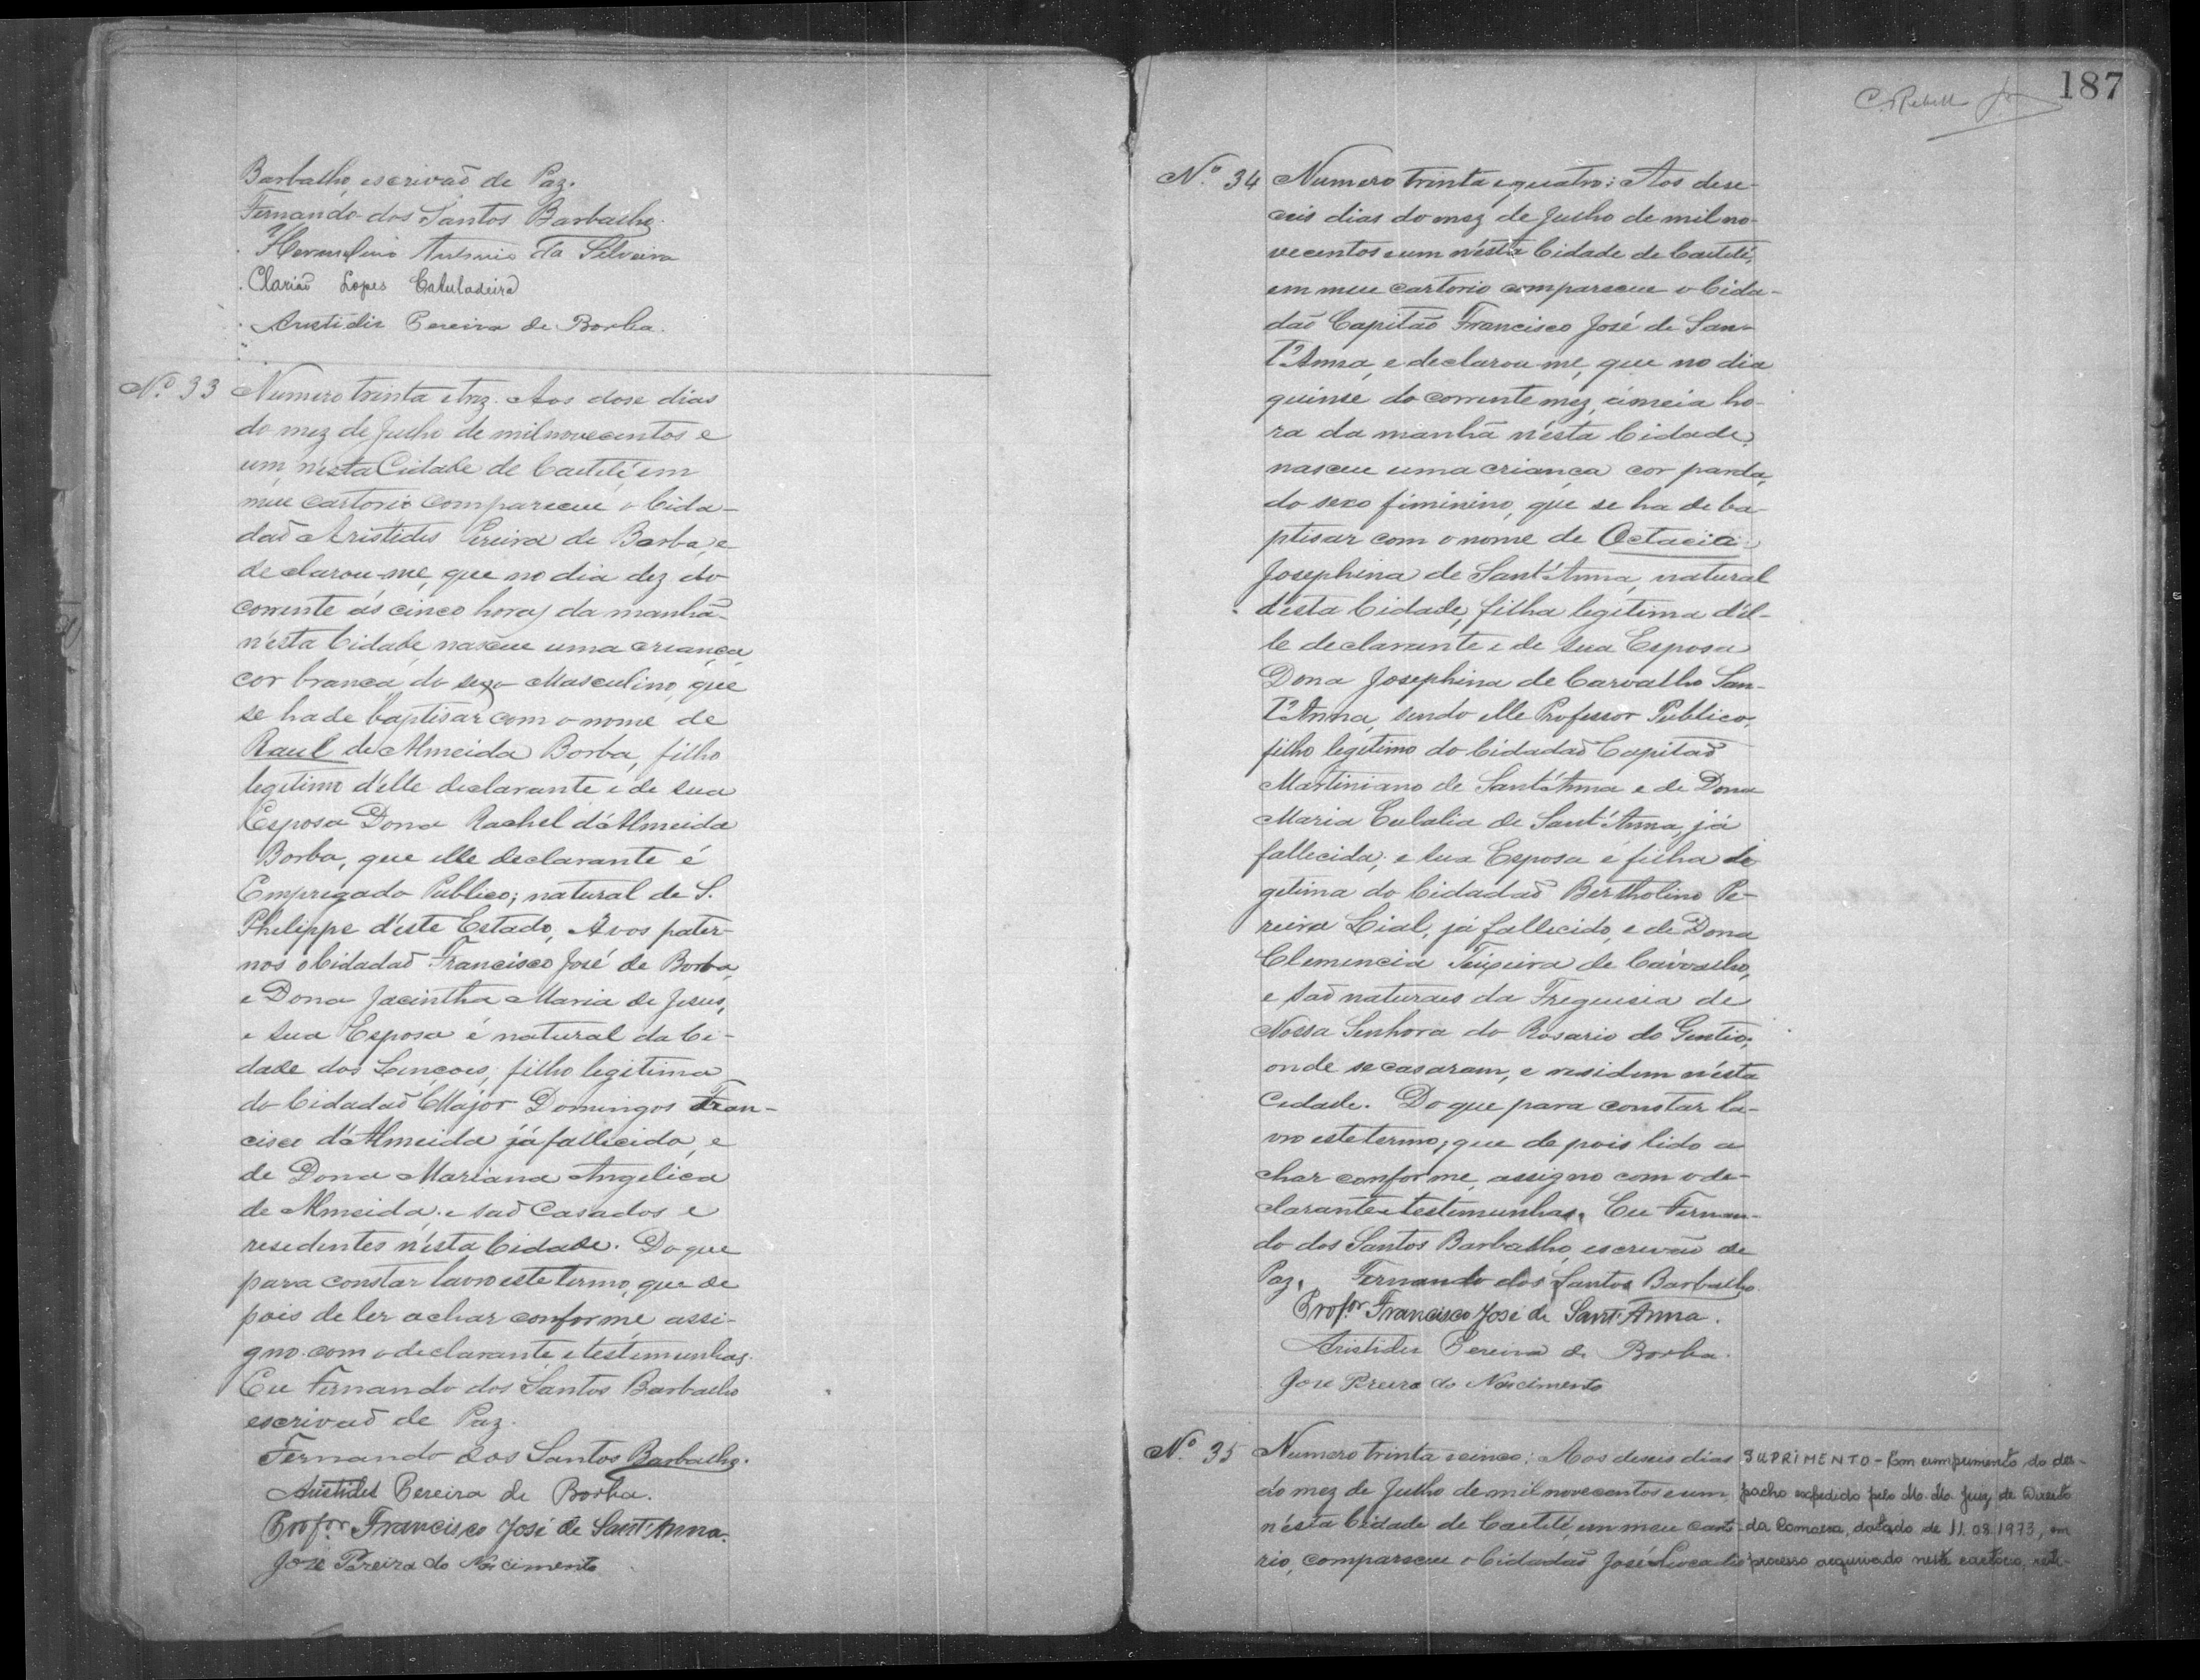 Barbalho, escrivaõ de Paz.
Fernando dos Santos Barbalho.
Antonio da Silveira
Lopes
Aristides Pereira de Borba.
Nº 33 Numero trinta e trez. Aos dose dias
do mez de Julho de mil novecentos e
um, n'esta Cidade de Caeteté, em
meu cartorio compareceu o Cida-
daõ Aristides Pereira de Borba, e
declarou-me, que no dia dez do
corrente ás cinco horas da manhã
n'esta Cidade nasceu uma criança
cor branca, do sexo Masculino, que
se hade baptisar com o nome de
Raul de Almeida Borba, filho
legitimo d'elle declarante e de sua
Esposa Dona Rachel d'Almeida
Borba, que elle declarante é
Empregado Publico; natural de S.
Philippe d'este Estado, Avos pater-
nos o Cidadaõ Francisco José de Borba,
e Dona Jacintha Maria de Jesus,
e sua Esposa é natural da Ci-
dade dos Lençoes, filha legitima
do Cidadaõ Major Domingos Fran-
cisco d'Almeida já fallecido, e
de Dona Mariana Angelica
de Almeida, e saõ Casados e
residentes n'esta Cidade. Do que
para constar lavro este termo, que de
pois de ler achar conforme assi-
gno com o declarante e testemunhas.
Eu Fernando dos Santos Barbalho
escrivaõ de Paz.
Fernando dos Santos Barbalho.
Aristides Pereira de Borba.
Profor Francisco José de Sant'Anna.
José Pereira do Nascimento
187
Nº 34 Numero trinta e quatro: Aos dese-
ceis dias do mez de Julho de mil no-
vecentos e um n'ésta Cidade de Caeteté,
em meu cartorio compareceu o Cida-
daõ Capitaõ Francisco José de San-
t'Anna, e declarou-me, que no dia
quinse do corrente mez, á meia ho-
ra da manhã n'ésta Cidade,
nasceu uma criança cor parda,
do sexo fiminino, que se ha de ba-
ptisar com o nome de Octacia
Josephina de Sant'Anna, natural
d'esta Cidade, filha legitima d'el-
le declarante e de sua Esposa
Dona Josephina de Carvalho San-
t'Anna, sendo elle Professor Publico,
filho legitimo do Cidadaõ Capitaõ
Martiniano de Sant'Anna e de Dona
Maria Eulalia de Sant'Anna, já
fallecida; e sua Esposa é filha le
gitima do Cidadaõ Bertholino Pe-
reira Lial, já fallecido, e de Dona
Clemencia Teixeira de Carvalho,
e saõ naturaes da Freguesia de
Nossa Senhora do Rosario do Gentio,
onde se casaram, e residem n'ésta
Cidade. Do que para constar la-
vro este termo, que depois lido a
char conforme, assigno com o de-
clarante e testemunhas. Eu Fernan-
do dos Santos Barbalho, escrivaõ de
Paz. Fernando dos Santos Barbalho
Profor Francisco José de Sant'Anna.
Aristides Pereira de Borba.
José Pereira do Nascimento
Nº 35 Numero trinta e cinco: Aos deseis dias
do mez de Julho de mil novecentos e um,
n'ésta Cidade de Caeteté, em meu carto
rio, compareceu o Cidadaõ José
SUPRIMENTO - Em cumprimento do des-
pacho expedido pelo M.M. Juiz de Direito
da Comarca, datado de 11.08.1973, em
processo arquivado neste cartório,